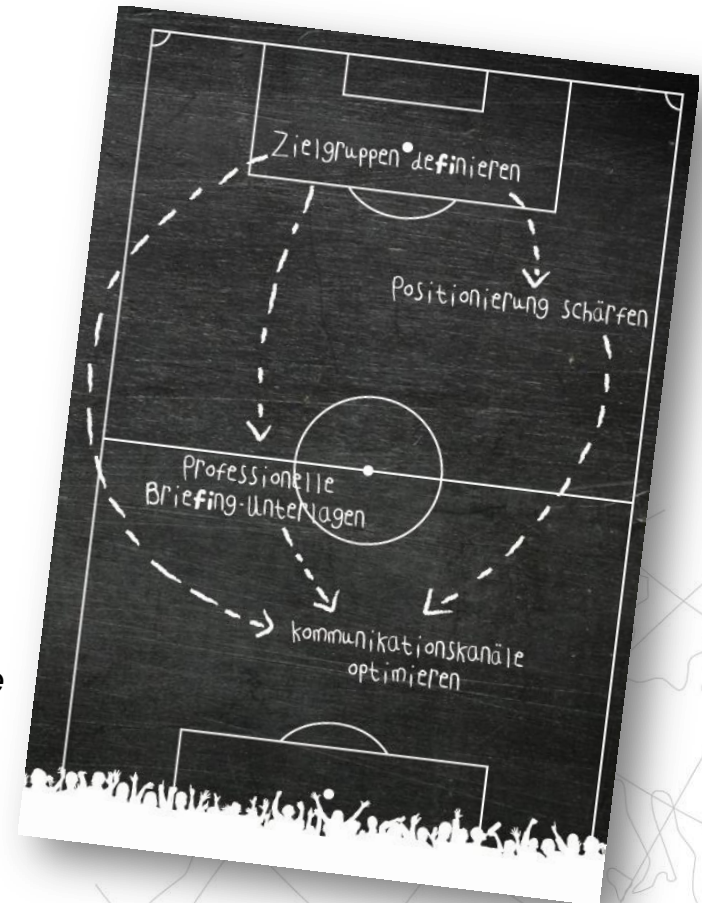 Zielgruppen definieren
Positionierung schärfen
Professionelle
Briefing-Unterlagen
kommunikationskanäle
optimieren
e